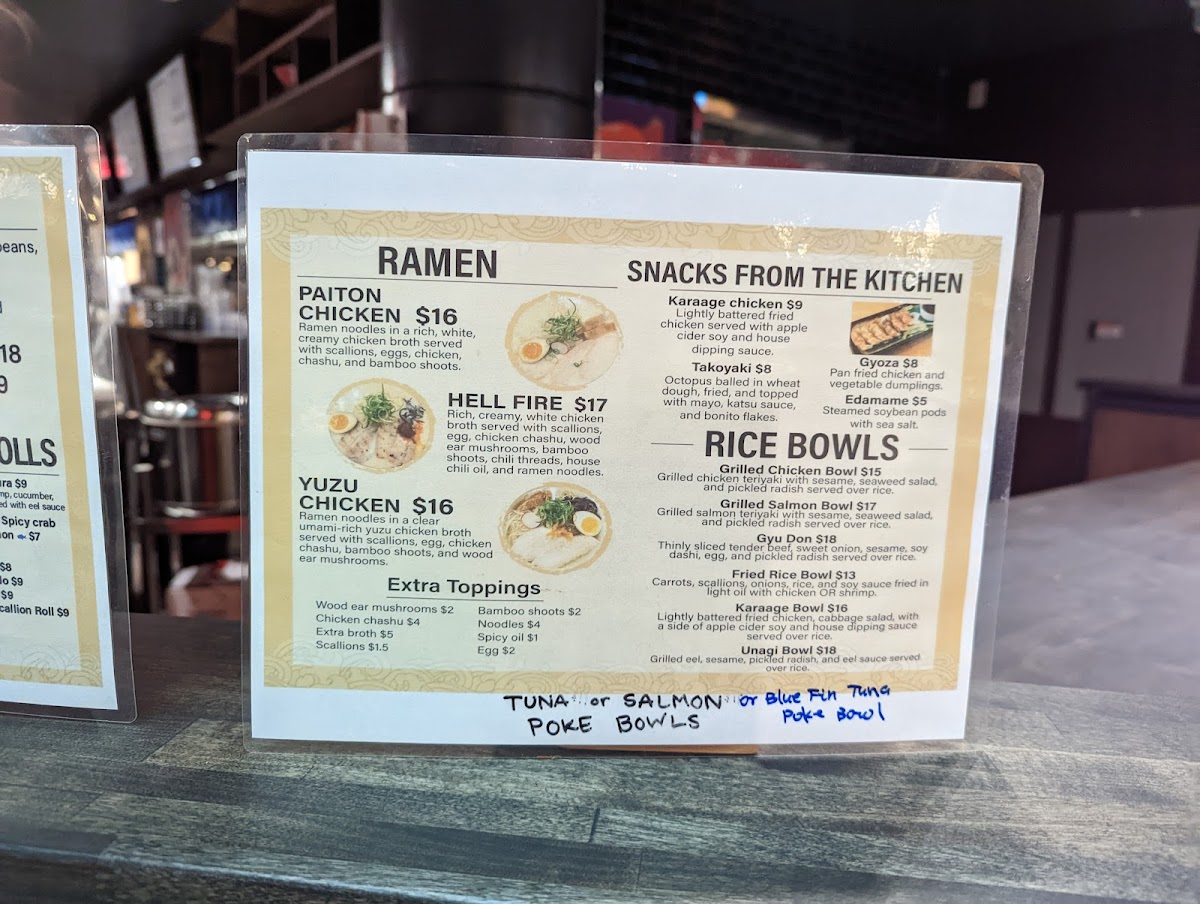 beans,
18
9
OLLS
ura $9
mp, cucumber,
ed with eel sauce
Spicy crab
on $7
$8
do $9
$9
callion Roll $9
RAMEN
PAITON
CHICKEN $16
Ramen noodles in a rich, white,
creamy chicken broth served
with scallions, eggs, chicken,
chashu, and bamboo shoots.
HELL FIRE $17
Rich, creamy, white chicken
broth served with scallions,
egg, chicken chashu, wood
ear mushrooms, bamboo
shoots, chili threads, house
chili oil, and ramen noodles.
YUZU
CHICKEN $16
Ramen noodles in a clear
umami-rich yuzu chicken broth
served with scallions, egg, chicken
chashu, bamboo shoots, and wood
ear mushrooms.
Extra Toppings
Wood ear mushrooms $2
Chicken chashu $4
Extra broth $5
Scallions $1.5
Bamboo shoots $2
Noodles $4
Spicy oil $1
Egg $2
SNACKS FROM THE KITCHEN
Karaage chicken $9
Lightly battered fried
chicken served with apple
cider soy and house
dipping sauce.
Takoyaki $8
Octopus balled in wheat
dough, fried, and topped
with mayo, katsu sauce,
and bonito flakes.
Gyoza $8
Pan fried chicken and
vegetable dumplings.
Edamame $5
Steamed soybean pods
with sea salt.
RICE BOWLS
Grilled Chicken Bowl $15
Grilled chicken teriyaki with sesame, seaweed salad,
and pickled radish served over rice.
Grilled Salmon Bowl $17
Grilled salmon teriyaki with sesame, seaweed salad,
and pickled radish served over rice.
Gyu Don $18
Thinly sliced tender beef, sweet onion, sesame, soy
dashi, egg, and pickled radish served over rice.
Fried Rice Bowl $13
Carrots, scallions, onions, rice, and soy sauce fried in
light oil with chicken OR shrimp.
Karaage Bowl $16
Lightly battered fried chicken, cabbage salad, with
a side of apple cider soy and house dipping sauce
served over rice.
Unagi Bowl $18
Grilled eel, sesame, pickled radish, and eel sauce served
over rice.
TUNA or SALMON or Blue Fin Tuna
POKE BOWLS Poke Bowl